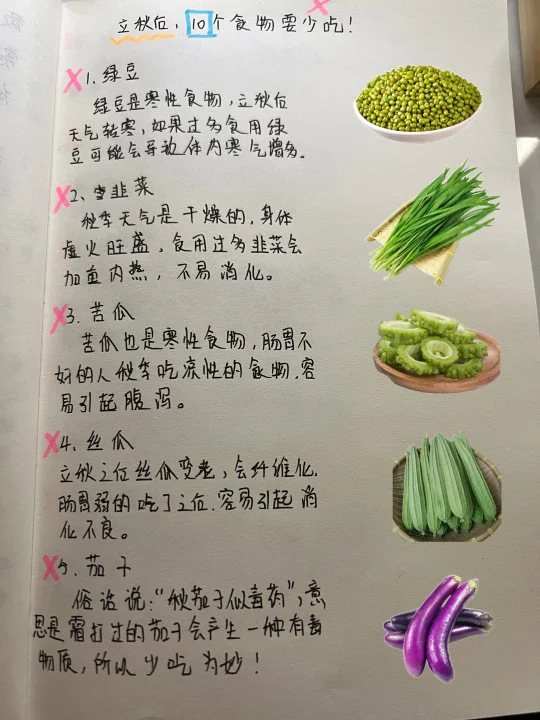 立秋后，10个食物要少吃！
1、绿豆
绿豆是寒性食物，立秋后
天气转寒，如果过多食用绿
豆可能会导致体内寒气增多。
2、韭菜
秋季天气是干燥的，身体
虚火旺盛，食用过多韭菜会
加重内热，不易消化。
3、苦瓜
苦瓜也是寒性食物，肠胃不
好的人秋季吃凉性的食物，容
易引起腹泻。
4、丝瓜
立秋之后丝瓜变老，会纤维化，
肠胃弱的吃了之后，容易引起消
化不良。
5、茄子
俗话说："秋茄子似毒药"，意
思是霜打过的茄子会产生一种有毒
物质，所以少吃为妙！